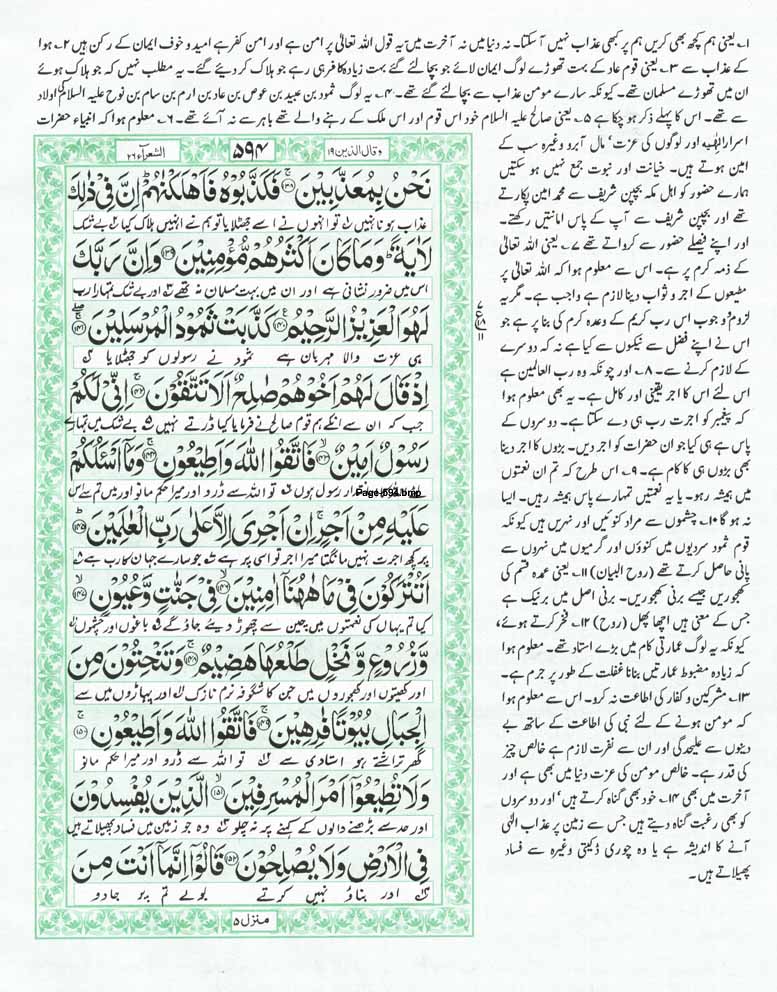 ۱۔ یعنی ہم کچھ بھی کریں ہم پر کبھی عذاب نہیں آ سکتا۔ نہ دنیا میں نہ آخرت میں۔ یہ قول اللہ تعالیٰ پر امن ہے اور امن کفر ہے امید و خوف ایمان کے رکن ہیں ۲۔ ہوا
کے عذاب سے ۳۔ یعنی قوم عاد کے بہت تھوڑے لوگ ایمان لائے جو بچا لئے گئے بہت زیادہ کافر ہی رہے جو ہلاک کر دیئے گئے۔ یہ مطلب نہیں کہ جو ہلاک ہوئے
ان میں تھوڑے مسلمان تھے۔ کیونکہ سارے مومن عذاب سے بچا لئے گئے تھے۔ ۴۔ یہ لوگ ثمود بن عبید بن عوص بن عاد بن ارم بن سام بن نوح علیہ السلام کی اولاد
سے تھے۔ اس کا پہلے ذکر ہو چکا ہے ۵۔ یعنی صالح علیہ السلام خود اس قوم اور اس ملک کے رہنے والے تھے باہر سے نہ آئے تھے۔ ۶۔ معلوم ہوا کہ انبیاء حضرات
اسرار الٰہیہ اور لوگوں کی عزت، مال آبرو وغیرہ سب کے
امین ہوتے ہیں۔ خیانت اور نبوت جمع نہیں ہو سکتیں
ہمارے حضور کو اہل مکہ بچپن شریف سے محمد امین پکارتے
تھے اور بچپن شریف سے آپ کے پاس امانتیں رکھتے۔
اور اپنے فیصلے حضور سے کرواتے تھے ۷۔ یعنی اللہ تعالیٰ
کے ذمہ کرم پر ہے۔ اس سے معلوم ہوا کہ اللہ تعالیٰ پر
مطیعوں کے اجر و ثواب دینا لازم ہے واجب ہے۔ مگر یہ
لزوم و وجوب اس رب کریم کے وعدہ کرم کی بنا پر ہے جو
اس نے اپنے فضل سے نیکوں سے کیا ہے نہ کہ دوسرے
کے لازم کرنے سے۔ ۸۔ اور چونکہ وہ رب العالمین ہے
اس لئے اس کا اجر یقینی اور کامل ہے۔ یہ بھی معلوم ہوا
کہ پیغمبر کو اجرت رب ہی دے سکتا ہے۔ دوسروں کے
پاس ہے ہی کیا جو ان حضرات کو اجر دیں۔ بڑوں کا اجر دینا
بھی بڑوں ہی کا کام ہے۔ ۹۔ اس طرح کہ تم ان نعمتوں
میں ہمیشہ رہو۔ یا یہ نعمتیں تمہارے پاس ہمیشہ رہیں۔ ایسا
نہ ہو گا ۱۰۔ چشموں سے مراد کنوئیں اور نہریں ہیں کیونکہ
قوم ثمود سردیوں میں کنوؤں اور گرمیوں میں نہروں سے
پانی حاصل کرتے تھے (روح البیان) ۱۱۔ یعنی عمدہ قسم کی
کھجوریں جیسے برنی کھجوریں۔ برنی اصل میں برنیک ہے
جس کے معنی ہیں اچھا پھل (روح) ۱۲۔ فخر کرتے ہوئے،
کیونکہ یہ لوگ عمارتی کام میں بڑے استاد تھے۔ معلوم ہوا
کہ زیادہ مضبوط عمارتیں بنانا غفلت کے طور پر جرم ہے۔
۱۳۔ مشرکین و کفار کی اطاعت نہ کرو۔ اس سے معلوم ہوا
کہ مومن ہونے کے لئے نبی کی اطاعت کے ساتھ بے
دینوں سے علیحدگی اور ان سے نفرت لازم ہے خالص چیز
کی قدر ہے۔ خالص مومن کی عزت دنیا میں بھی ہے اور
آخرت میں بھی ۱۴۔ خود بھی گناہ کرتے ہیں، اور دوسروں
کو بھی رغبت گناہ دیتے ہیں جس سے زمین پر عذاب الٰہی
آنے کا اندیشہ ہے یا وہ چوری ڈکیتی وغیرہ سے فساد
پھیلاتے ہیں۔
وقال الذین ۱۹ ۵۹۴ الشعراء ۲۶
نَحْنُ بِمُعَذَّبِيْنَ ﴿۱۳۸﴾ فَكَذَّبُوْهُ فَاَهْلَكْنٰهُمْ اِنَّ فِيْ ذٰلِكَ
عذاب ہونا نہیں تو انہوں نے اسے جھٹلایا تو ہم نے انہیں ہلاک کیا بے شک
لَاٰيَةً وَمَا كَانَ اَكْثَرُهُمْ مُّؤْمِنِيْنَ ﴿۱۳۹﴾ وَاِنَّ رَبَّكَ
اس میں ضرور نشانی ہے اور ان میں بہت مسلمان نہ تھے اور بے شک تمہارا رب
لَهُوَ الْعَزِيْزُ الرَّحِيْمُ ﴿۱۴۰﴾ كَذَّبَتْ ثَمُوْدُ الْمُرْسَلِيْنَ ﴿۱۴۱﴾
ہی عزت والا مہربان ہے ثمود نے رسولوں کو جھٹلایا
اِذْ قَالَ لَهُمْ اَخُوْهُمْ صٰلِحٌ اَلَا تَتَّقُوْنَ ﴿۱۴۲﴾ اِنِّيْ لَكُمْ
جب کہ ان سے انکے ہم قوم صالح نے فرمایا کیا ڈرتے نہیں بے شک میں تمہارے
رَسُوْلٌ اَمِيْنٌ ﴿۱۴۳﴾ فَاتَّقُوا اللّٰهَ وَاَطِيْعُوْنِ ﴿۱۴۴﴾ وَمَا اَسْـَٔلُكُمْ
رسول ہوں تو اللہ سے ڈرو اور میرا حکم مانو اور میں تم سے اس
Page-594.bmp
عَلَيْهِ مِنْ اَجْرٍ اِنْ اَجْرِيَ اِلَّا عَلٰى رَبِّ الْعٰلَمِيْنَ ﴿۱۴۵﴾
پر کچھ اجرت نہیں مانگتا میرا اجر تو اسی پر ہے جو سارے جہان کا رب ہے
اَتُتْرَكُوْنَ فِيْ مَا هٰهُنَا اٰمِنِيْنَ ﴿۱۴۶﴾ فِيْ جَنّٰتٍ وَّعُيُوْنٍ ﴿۱۴۷﴾
کیا تم یہاں کی نعمتوں میں چین سے چھوڑ دیئے جاؤ گے باغوں اور چشموں
وَّزُرُوْعٍ وَّنَخْلٍ طَلْعُهَا هَضِيْمٌ ﴿۱۴۸﴾ وَتَنْحِتُوْنَ مِنَ
اور کھیتوں اور کھجوروں میں جن کا شگوفہ نرم نازک اور پہاڑوں میں سے
الْجِبَالِ بُيُوْتًا فٰرِهِيْنَ ﴿۱۴۹﴾ فَاتَّقُوا اللّٰهَ وَاَطِيْعُوْنِ ﴿۱۵۰﴾
گھر تراشتے ہو استادی سے تو اللہ سے ڈرو اور میرا حکم مانو
وَلَا تُطِيْعُوْا اَمْرَ الْمُسْرِفِيْنَ ﴿۱۵۱﴾ الَّذِيْنَ يُفْسِدُوْنَ
اور حد سے بڑھنے والوں کے کہنے پر نہ چلو وہ جو زمین میں فساد پھیلاتے ہیں
فِي الْاَرْضِ وَلَا يُصْلِحُوْنَ ﴿۱۵۲﴾ قَالُوْا اِنَّمَا اَنْتَ مِنَ
اور بناؤ نہیں کرتے بولے تم پر جادو
منزل ۵